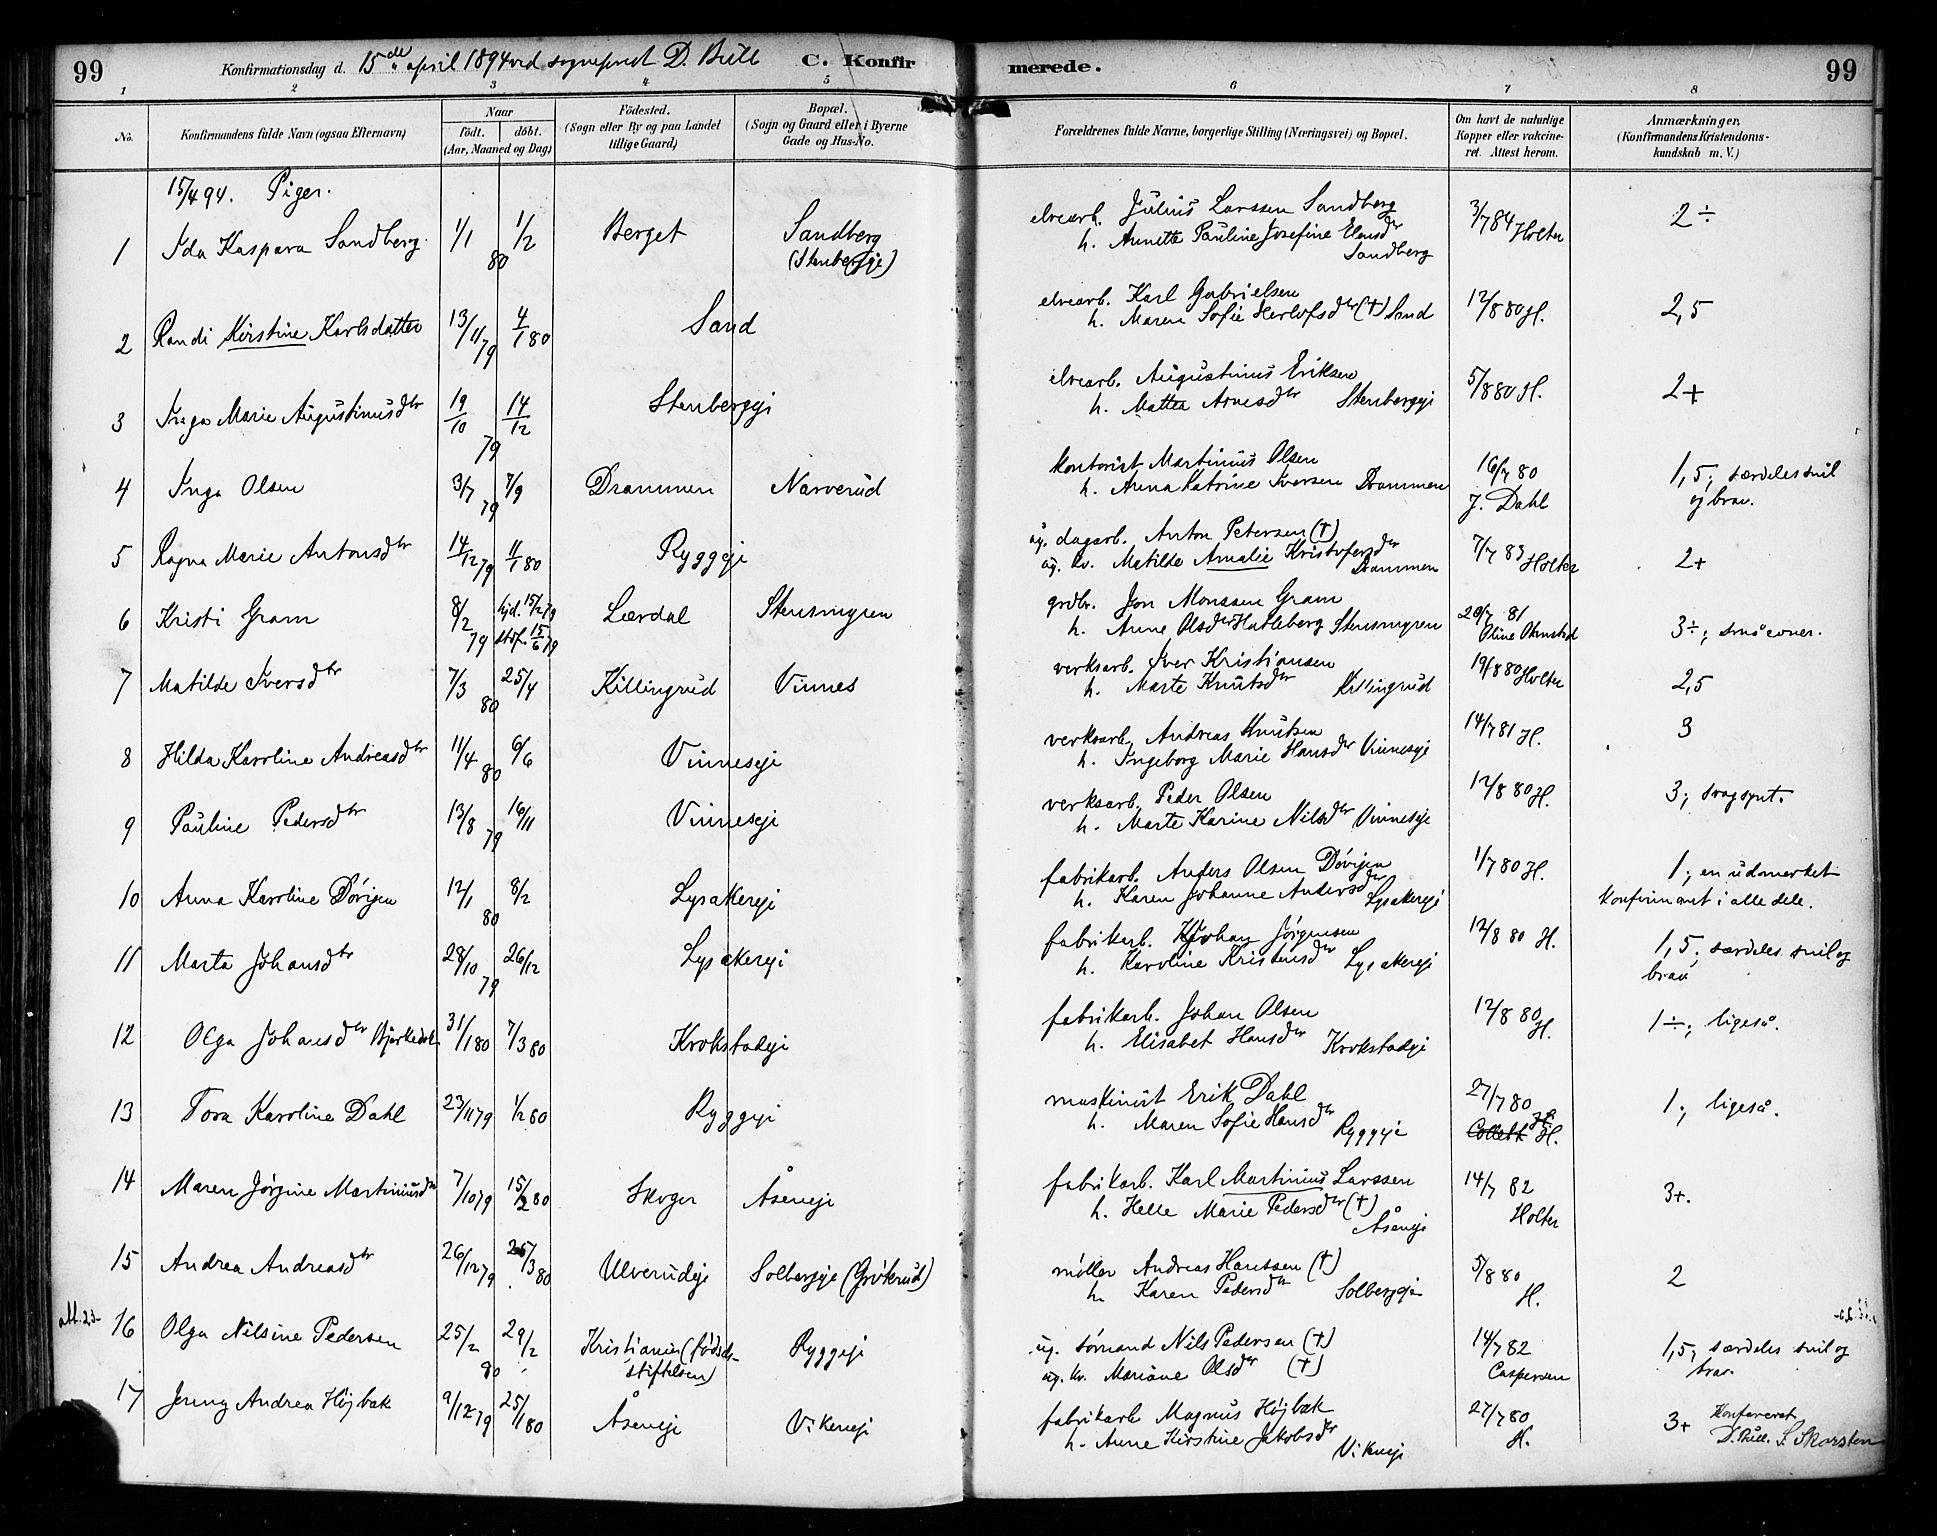 99
Konfirmationsdag d. 15de april 1894 ved sogneprest D. Bull
C. Konfirmerede.
99
1 2 3 4 5 6 7 8
No. Konfirmandens fulde Navn (ogsaa Efternavn) Naar födt. döbt. (Aar, Maaned og Dag) Födested. (Sogn eller By og paa Landet tillige Gaard) Bopæl. (Sogn og Gaard eller i Byerne Gade og Hus-No. Forældrenes fulde Navne, borgerlige Stilling (Næringsvei) og Bopæl. Om havt de naturlige Kopper eller vakcineret. Attest herom. Anmærkninger, (Konfirmandens Kristendomskundskab m. V.)
15/4 94. Piger.
1 Ida Kaspara Sandberg 1/1 80 1/2 Berget Sandberg (Stenbergeje) elvearb. Julius Larssen Sandberg
h. Annette Pauline Josefine Elensdtr Sandberg 3/7 84 Holter 2÷
2 Randi Kirstine Karlsdatter 13/11 79 4/1 80 Sand elvearb. Karl Gabrielsen
h. Maren Sofie Herlofsdtr (†) Sand 12/8 80 H. 2,5
3 Inga Marie Augustinusdtr 19/10 79 14/12 Stenbergeji elvearb. Augustinus Eriksen
h. Mattea Arnesdtr Stenbergeji 5/8 80 H. 2+
4 Inga Olsen 3/7 79 7/9 Drammen Narverud kontorist Martinius Olsen
h. Anna Katrine Iversen Drammen 16/7 80 J. Dahl 1,5; særdeles snil og brav.
5 Ragna Marie Antonsdtr 14/12 79 11/1 80 Ryggeje ug. dagarb. Anton Petersen (†)
ug. kv. Matilde Amalie Kristofersdtr Drammen 7/7 83 Holter 2+
6 Kristi Gram 8/2 79 hjd. 15/2 79 stsf. 15/6 79 Lærdal Stensmyren grdbr. Jon Monssen Gram
h. Anne Olsdtr Hatleberg Stensmyren 20/7 81 Oline Omsted 3÷; små evner.
7 Matilde Iversdtr 7/3 80 25/4 Killingrud Vinnes verksarb. Iver Kristiansen
h. Marte Knutsdtr Killingrud 19/8 80 Holter 2,5
8 Hilda Karoline Andreasdtr 11/4 80 6/6 Vinneseje verksarb. Andreas Knutsen
h. Ingeborg Marie Hansdtr Vinneseje 14/7 81 H. 3
9 Pauline Pedersdtr 13/8 79 16/11 Vinneseje verksarb. Peder Olsen
h. Marte Karine Nilsdtr Vinneseje 12/8 80 H. 3; svagsynt.
10 Anna Karoline Døvigen 12/1 80 8/2 Lysakereje fabrikarb. Anders Olsen Døvigen
h. Karen Johanne Andersdtr Lysakereje 1/7 80 H. 1; en udmerket konfirmant i alle dele.
11 Marta Johansdtr 28/10 79 26/12 Lysakereje fabrikarb. Johan Jørgensen
h. Karoline Kristensdtr Lysakereje 12/8 80 H. 1,5; særdeles snil og brav
12 Olga Johansdtr 31/1 80 7/3 80 Krokstadeje fabrikarb. Johan Olsen
h. Elisabet Hansdtr Krokstadeje 12/8 80 H. 1÷; ligeså.
13 Tora Karoline Dahl 23/11 79 1/2 80 Ryggeje maskinist Erik Dahl
h. Maren Sofie Hansdtr Ryggeje 27/7 80 Collett H. 1; ligeså.
14 Maren Jørgine Martiniusdtr 7/10 79 15/2 80 Skoger Åseneje fabrikarb. Karl Martinius Larssen
h. Helle Marie Pedersdtr (†) Åseneje 14/7 82 Holter 3+.
15 Andrea Andreasdtr 26/12 79 25/3 80 Ulverudeje Solbergeje (Grøterud) møller Andreas Hanssen (†)
h. Karen Pedersdtr Solbergeje 5/8 80 H. 2
att. 23- 16 Olga Nilsine Pedersen 25/2 80 29/2 Kristiania (fødselsstiftelsen) Ryggeje ug. sømand Nils Pedersen (†)
ug. kv. Mariane Olsdtr (†) 14/7 82 Caspersen 1,5; særdeles snil og brav.
17 Jenny Andrea Højbak 9/12 79 25/1 80 Åseneje Vikeneje fabrikarb. Magnus Højbak
h. Anne Kirstine Jakobsdtr Vikeneje 27/7 80 H. 3+ Konfereret D. Bull. S. Skarsten